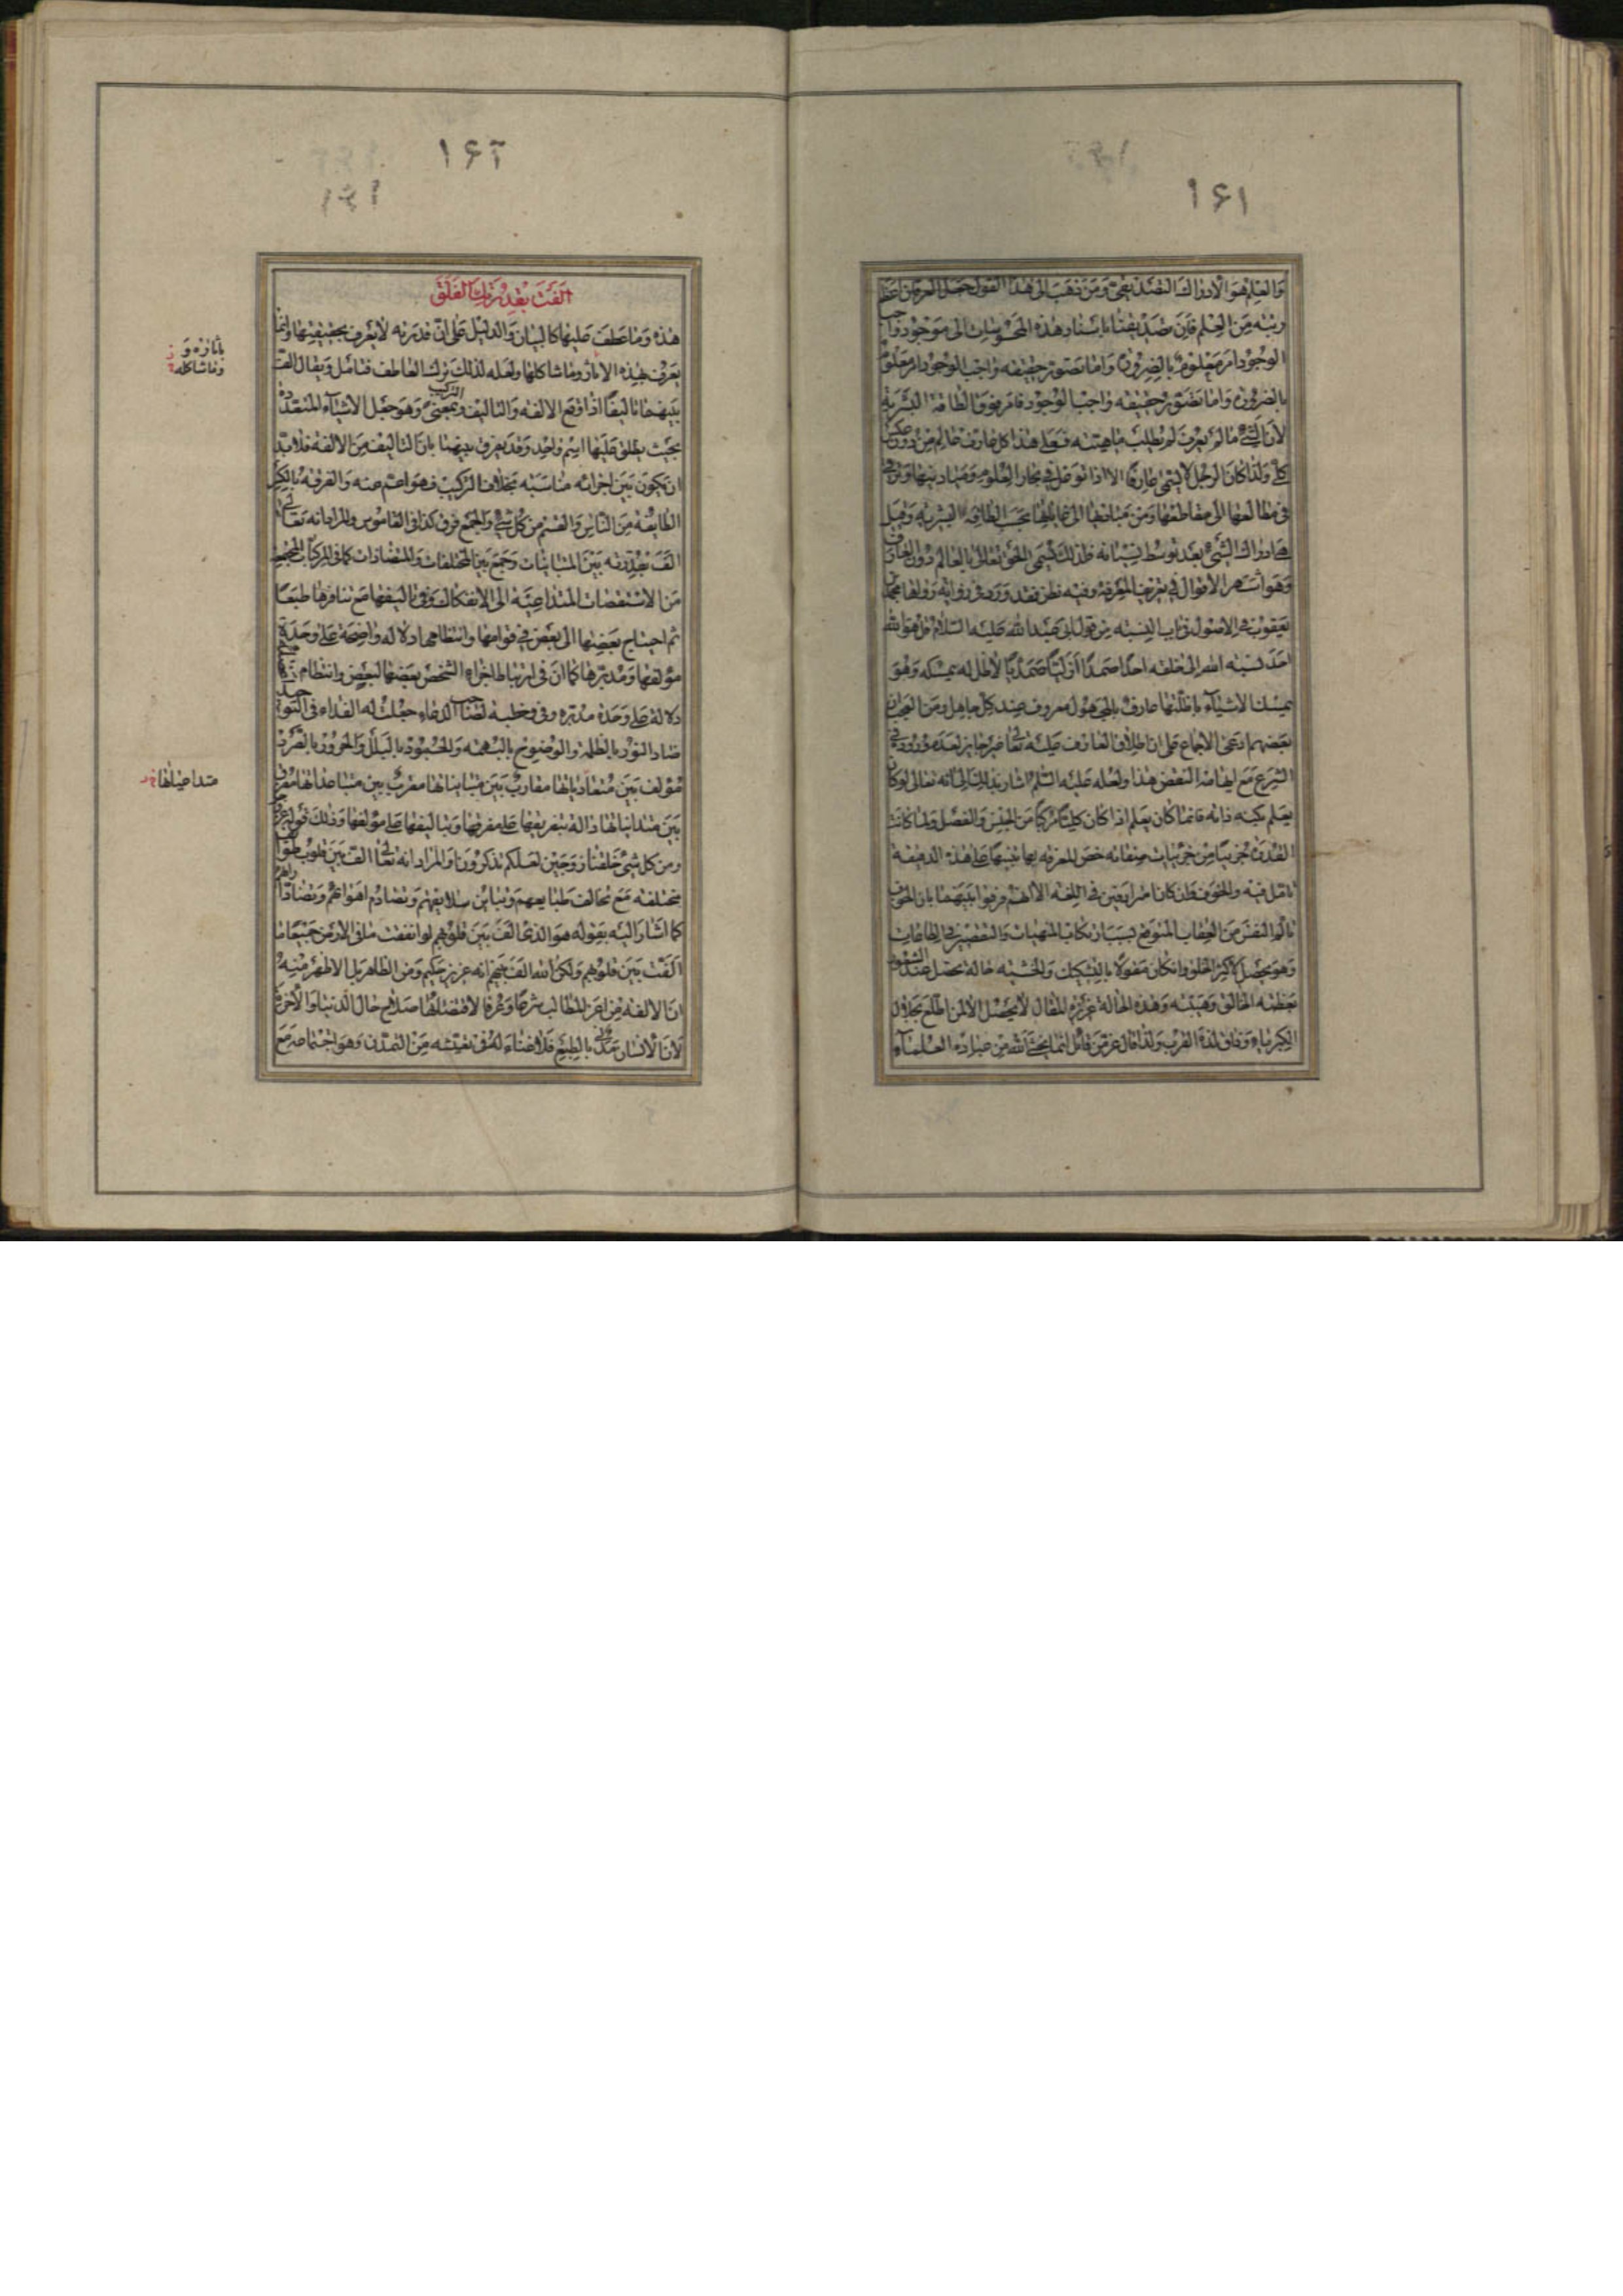 ۱۶۱
والعلم هو الادراك التصديقي ومن ذهب الى هذا القول جعل العرفان اعظم
رتبة من العلم فان تصديقنا باستناد هذه المحسوسات الى موجود واجب
الوجود امر معلوم بالضرورة واما تصور حقيقة واجب الوجود امر معلوم
بالضرورة واما تصور حقيقة واجب الوجود فامر فوق الطاقة البشرية
لان الشئ ما لم يعرف لم يطلب ماهيته فعلى هذا كل عارف عالم من دون عكس
كلي ولذا كان الرجل لا يسمى عارفا الا اذا توغل في بحار العلوم ومباديها وترقى
في مطالعها الى مقاطعها ومن مباديها الى غاياتها بحسب الطاقة البشرية وقيل
هي ادراك الشئ بعد توسط نسيانه فلذلك يسمى الحق تعالى بالعالم دون العارف
وهو اشهر الاقوال في تعريف المعرفة وفيه نظر فقد ورد في رواية رواها محمد بن
يعقوب في الاصول في باب النسبة من قول ابي عبد الله عليه السلام قل هو الله
احد نسبة الله الى خلقه احدا صمدا ازليا صمديا لا ظل له يمسكه وهو
يمسك الاشياء باظلتها عارف بالمجهول معروف عند كل جاهل ومن العجب ان
بعضهم ادعى الاجماع على ان اطلاق العارف عليه تعالى غير جايز لعدم وروده في
الشرع مع ايهامه النقص هذا ولعله عليه السلم اشار بذلك الى انه تعالى لو كان
يعلم بكنه ذاته فانما كان يعلم اذا كان كليا مركبا من الجنس والفصل ولما كانت
القدرة جزئيا من جزئيات صفاته خص المعرفة بها تنبيها على هذه الدقيقة
تامل فيه والخوف وان كانا مترادفين في اللغة الا انهم فرقوا بينهما بان الخوف
تالم النفس من العقاب المتوقع بسبب ارتكاب المنهيات والتقصير في الطاعات
وهو يحصل لاكثر الخلق وان كان مقولا بالتشكيك والخشية حالة تحصل عند الشعور
بعظمة الخالق وهيبته وهذه الحالة عزيزة المثال لا يحصل الا لمن اطلع بجلال
الكبرياء وذاق لذة القرب ولذا قال عز من قائل انما يخشى الله من عباده العلماء
۱۶۲
الفت بقدرتك الفلق
هذه وما عطف عليها كالبيان والدليل على ان قدرته لا يعرف بحقيقتها وانما
يعرف بهذه الاثار وما شاكلها ولعله لذلك ترك العاطف فتامل ويقال الفت
بينهما تاليفا اذا اوقع الالفة والتاليف والتركيب بمعنى وهو جعل الاشياء المتعددة
بحيث يطلق عليها اسم واحد وقد يفرق بينهما بان التاليف من الالفة فلا بد
ان يكون بين اجزائه مناسبة بخلاف التركيب فهو اعم منه والفرقة بالكسر
الطايفة من الناس والقسم من كل شئ والجمع فرق كذا في القاموس والمراد انه تعالى
الف بقدرته بين المتباينات وجمع بين المختلفات والمتضادات كما في المركبات المجتمعة
من الاستقصات المتداعية الى الانفكاك وفي تاليفها مع تنافرها طبعا
ثم احتياج بعضها الى بعض في قوامها وانتظامها دلالة واضحة على وحدة
مؤلفها ومدبرها كما ان في ارتباط اجزاء الشخص بعضها ببعض وانتظام
دلالة على وحدة مدبره وفي خطبة لصاحب الدعاء جعلت له الفداء في التوحيد
ضاد النور بالظلمة والوضوح بالبهمة والجمود بالبلل والحرور بالصرد
مؤلف بين متعادياتها مقارب بين متبايناتها مقرب بين متباعداتها مفرق
بين متدانياتها دالة بتفريقها على مفرقها وبتاليفها على مؤلفها وذلك قوله عز وجل
ومن كل شئ خلقنا زوجين لعلكم تذكرون او المراد انه تعالى الف بين قلوب طوائف
مختلفة مع تخالف طبايعهم وتباين سلايقهم وتصادم اهوائهم وتضاد ارائهم
كما اشار اليه بقوله هو الذي الف بين قلوبهم لو انفقت ما في الارض جميعا ما
الفت بين قلوبهم ولكن الله الف بينهم انه عزيز حكيم ومن الظاهر بل الاظهر منه
ان الالفة من اعز المطالب شرعا وعرفا لاقتضائها صلاح حال الدنيا والاخرة
لان الانسان مدني بالطبع فلا غناء له في تعيشه من التمدن وهو اجتماعه مع
باثاره و
وما شاكله
متداعياتها